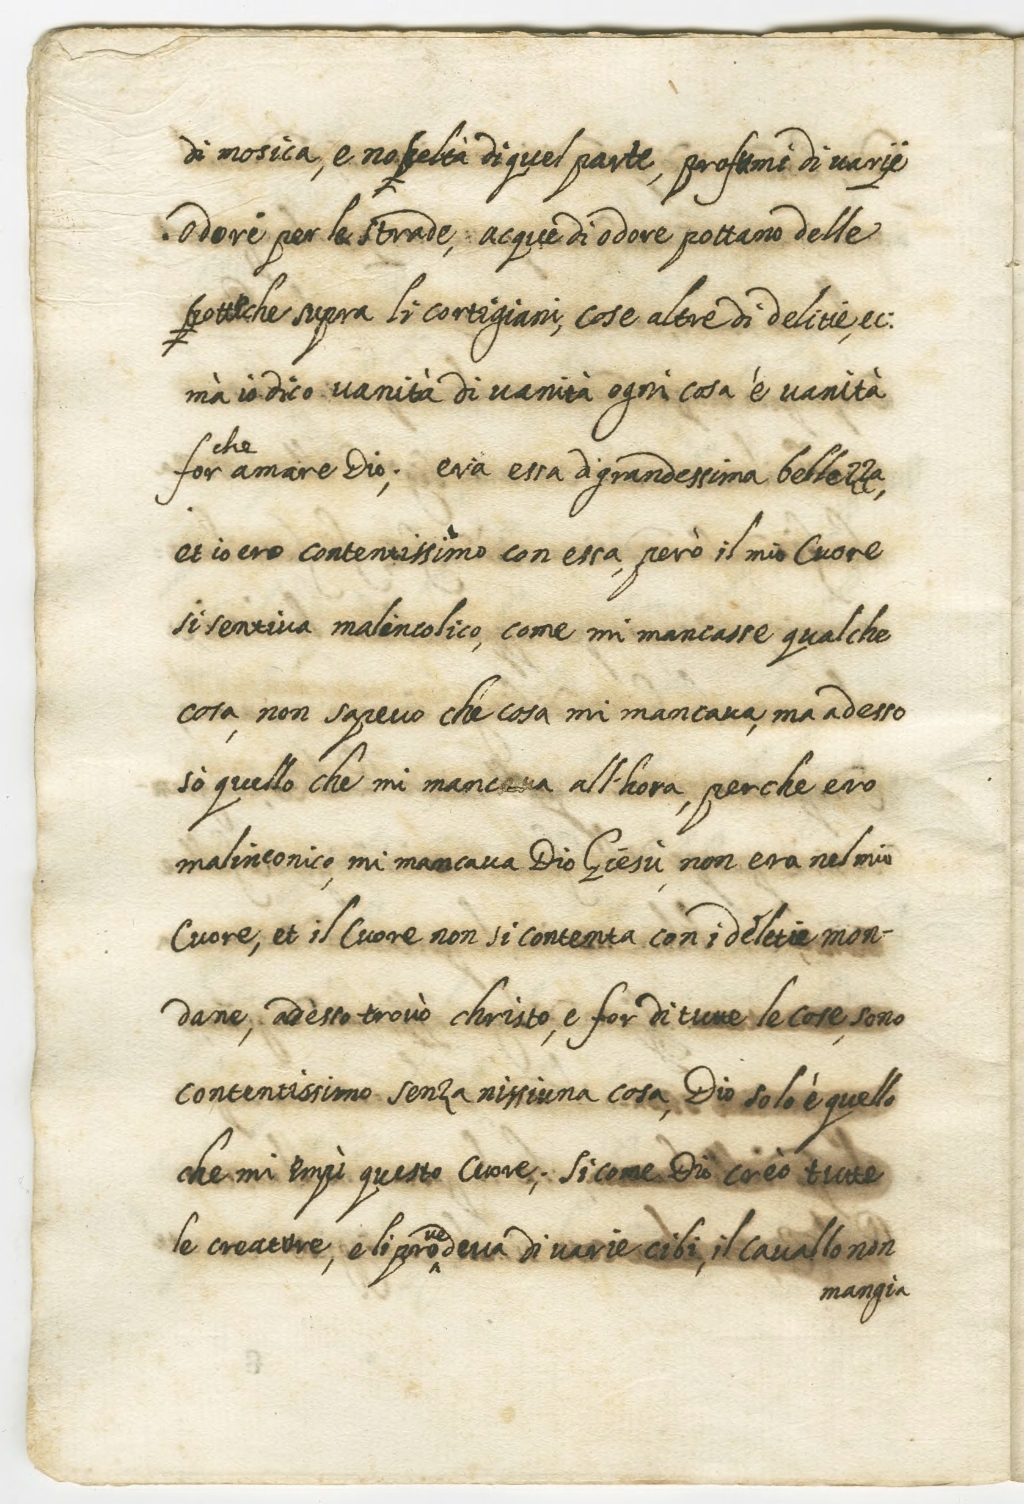 di mosica, e nobeltà di quel parte, profumi di varij
odori per le strade, acque di odore pottano delle
bottiche supra li cortigiani, cose altre di delitie, ec:
mà io dico vanità di vanità ogni cosa è vanità
for che amare Dio; era essa di grandessima bellezza,
et io ero contentissimo con essa, però il mio Cuore
si sentiva malencolico, come mi mancasse qualche
cosa, non sapevo che cosa mi mancava, ma adesso
sò quello che mi mancava all'hora, perche ero
malinconico, mi mancava Dio Giesù, non era nel mio
Cuore, et il Cuore non si contenta con i deletie mon-
dane, adesso trovò christo, e for di tutte le cose, sono
contentissimo senza nissiuna cosa, Dio solo è quello
che mi empì questo Cuore; si come Dio creò tutte
le creature, e li provedeva di varie cibi, il cavallo non
mangia